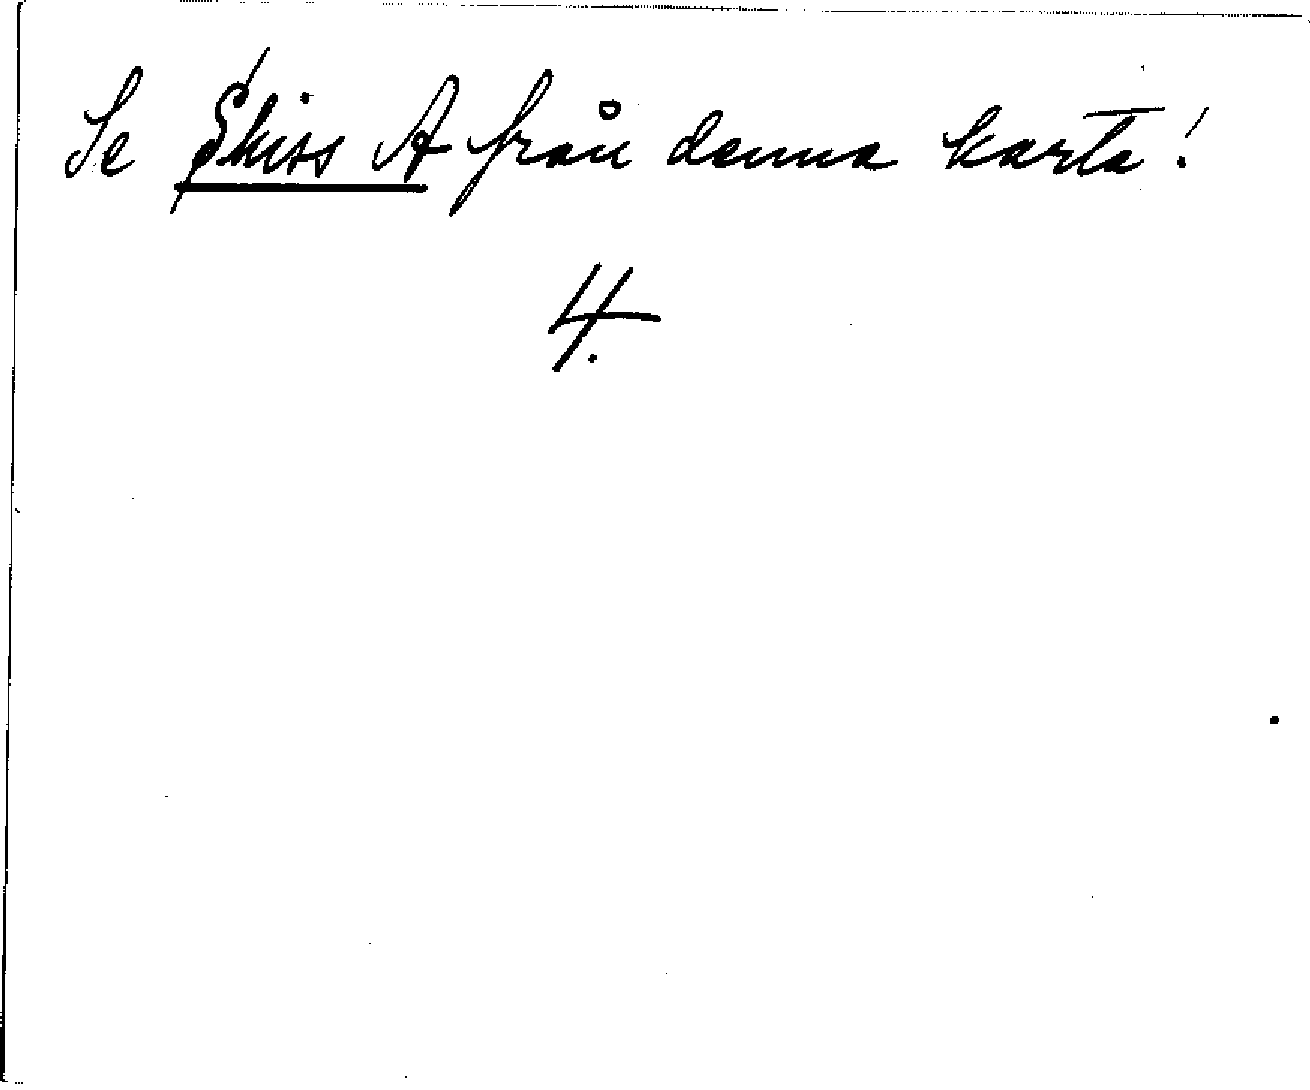 Se Skiss A från denna karta!
4.